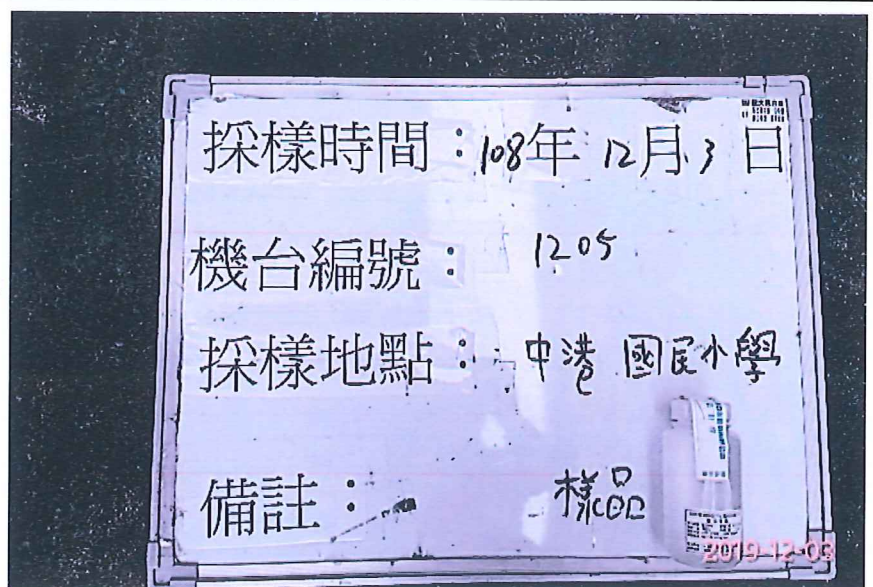 採樣時間：108年 12月 3 日
機台編號： 1205
採樣地點： 中港 國民小學
備註： 樣品
2019-12-03